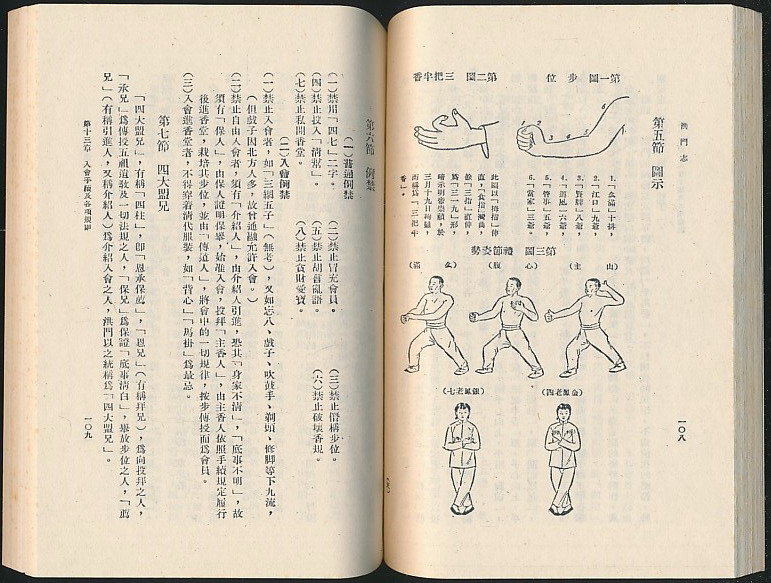 洪門志
第五節 圖示
第一圖 步位
1. 6.
1 2 3 4 5 6
1.「么滿」十排，
2.「江口」九爺，
3.「賢牌」八爺，
4.「巡風」六爺，
5.「管事」五爺，
6.「當家」三爺，
第二圖 三把半香
此圖以「拇指」伸
直，「食指」彎曲，
餘「三指」直伸，
為「三一九」形，
暗示明崇禎帝，於
三月十九日殉難，
而稱為「三把半
香」。
第三圖 禮節姿勢
（山主）
（心腹）
（么滿）
（金鳳老四）
（銀鳳老七）
一〇八
第六節 例禁
（一）普通例禁
（一）禁用「四七」二字。
（二）禁止冒充會員。
（三）禁止僭稱步位。
（四）禁止投入「清幫」。
（五）禁止胡言亂語。
（六）禁止破壞香規。
（七）禁止私開香堂。
（八）禁止貪財愛寶。
（二）入會例禁
（一）禁止入會者，如「三綱五子」（無考），又如忘八、戲子、吹鼓手、剃頭、修脚等下九流，
（但戲子因北方人多，故曾通融允許入會。）
（二）禁止自由入會者，須有「介紹人」，由介紹人引進，恐其「身家不清」，「底事不明」，故
須有「保人」，由保人證明保舉，始准入會，投拜「主香人」，由主香人依照手續規定履行
後進香堂，栽培其步位，並由「傳道人」，將會中的一切規律，按步傳授而為會員。
（三）入會進香堂者，不得穿着清代服裝，如「背心」「馬掛」為最忌。
第七節 四大盟兄
「四大盟兄」，有稱「四柱」，卽「恩承保薦」，「恩兄」（有稱拜兄），為向投拜之人，
「承兄」為傳授五祖遺敎及一切法規之人，「保兄」為保證「底事淸白」，舉放步位之人，「薦
兄」（有稱引進人，又稱介紹人）為介紹入會之人，洪門以之統稱為「四大盟兄」。
第十三章 入會手續及各項規律
一〇九